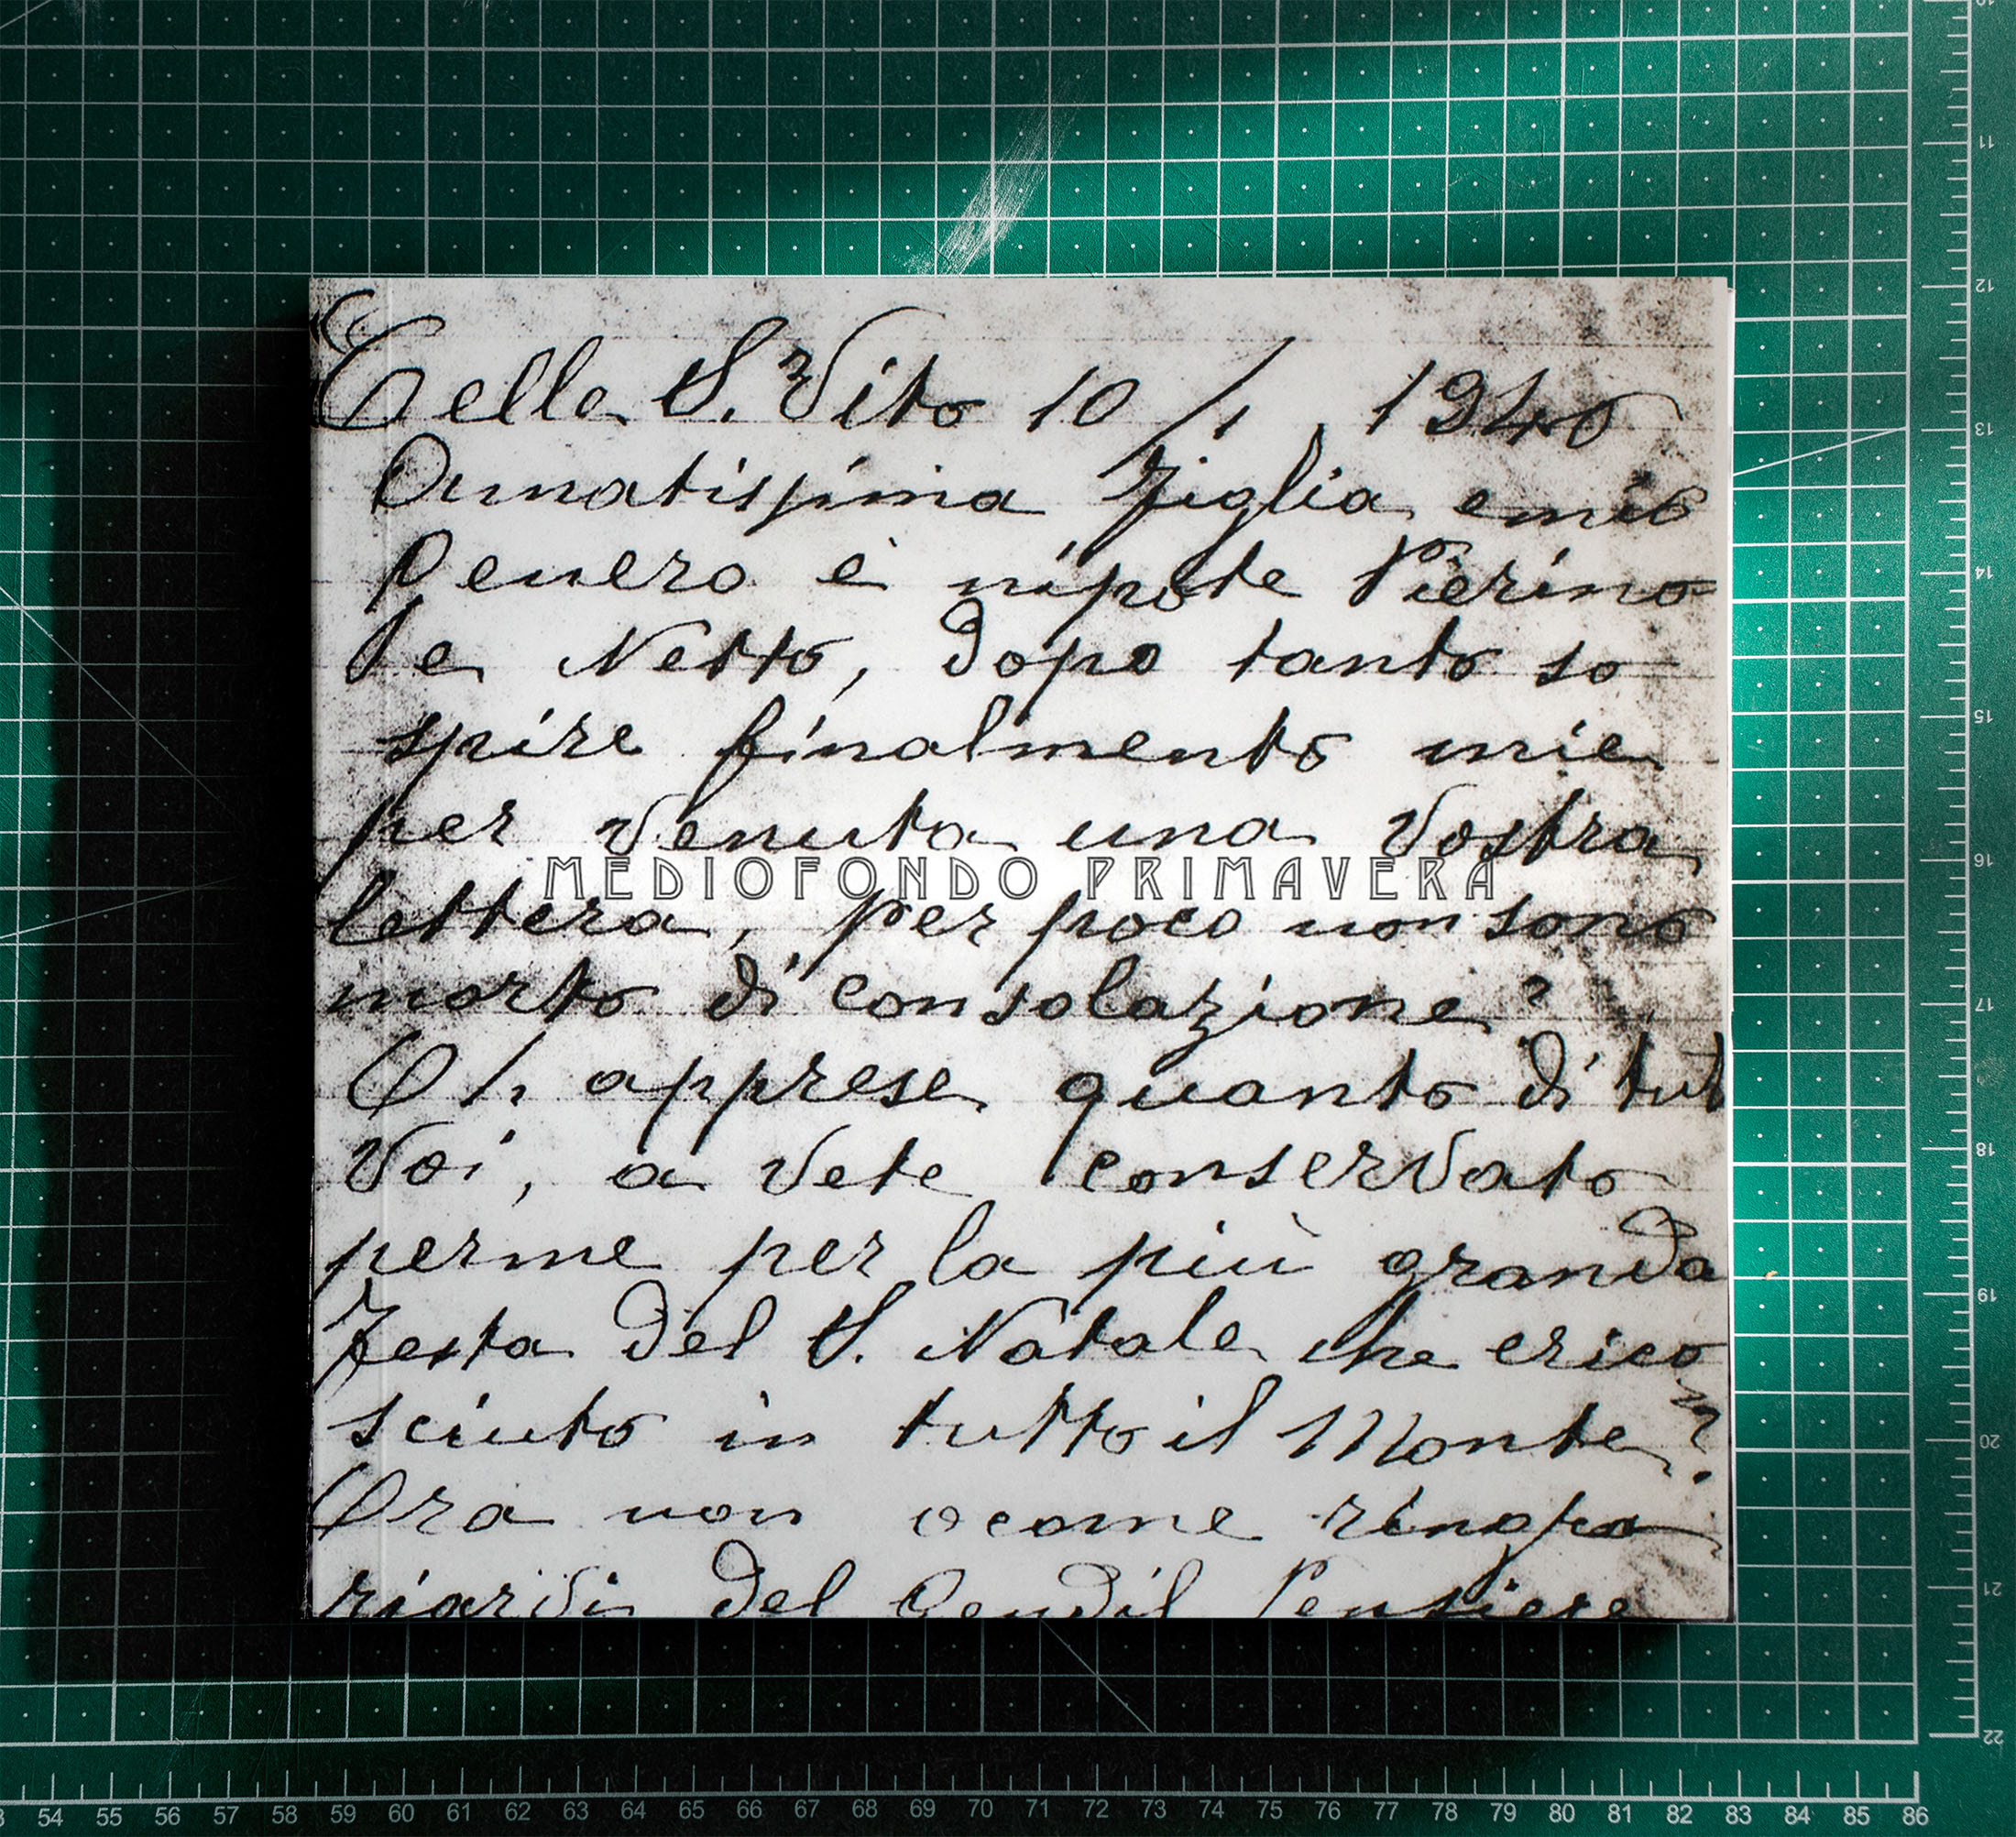 Cella S. Vito 10/1, 1940
Amatissima Figlia, e mio
Genero è nipote Pierino
Da Netto, dopo tanto so
spire finalmento mie
per venuta una vostra
MEDIOFONDO PRIMAVERA
lettera, per poco non sono
morto di consolazione?
O h apprese quanto di tut
Voi, a vete conservato
perme per la più granda
Festa del S. Natale che erico
sciuto in tutto il Monte?
Ora non o come ringra
riarvi del Gendil Pensiere
10
11
12
13
14
15
16
17
18
19
20
21
22
54 55 56 57 58 59 60 61 62 63 64 65 66 67 68 69 70 71 72 73 74 75 76 77 78 79 80 81 82 83 84 85 86